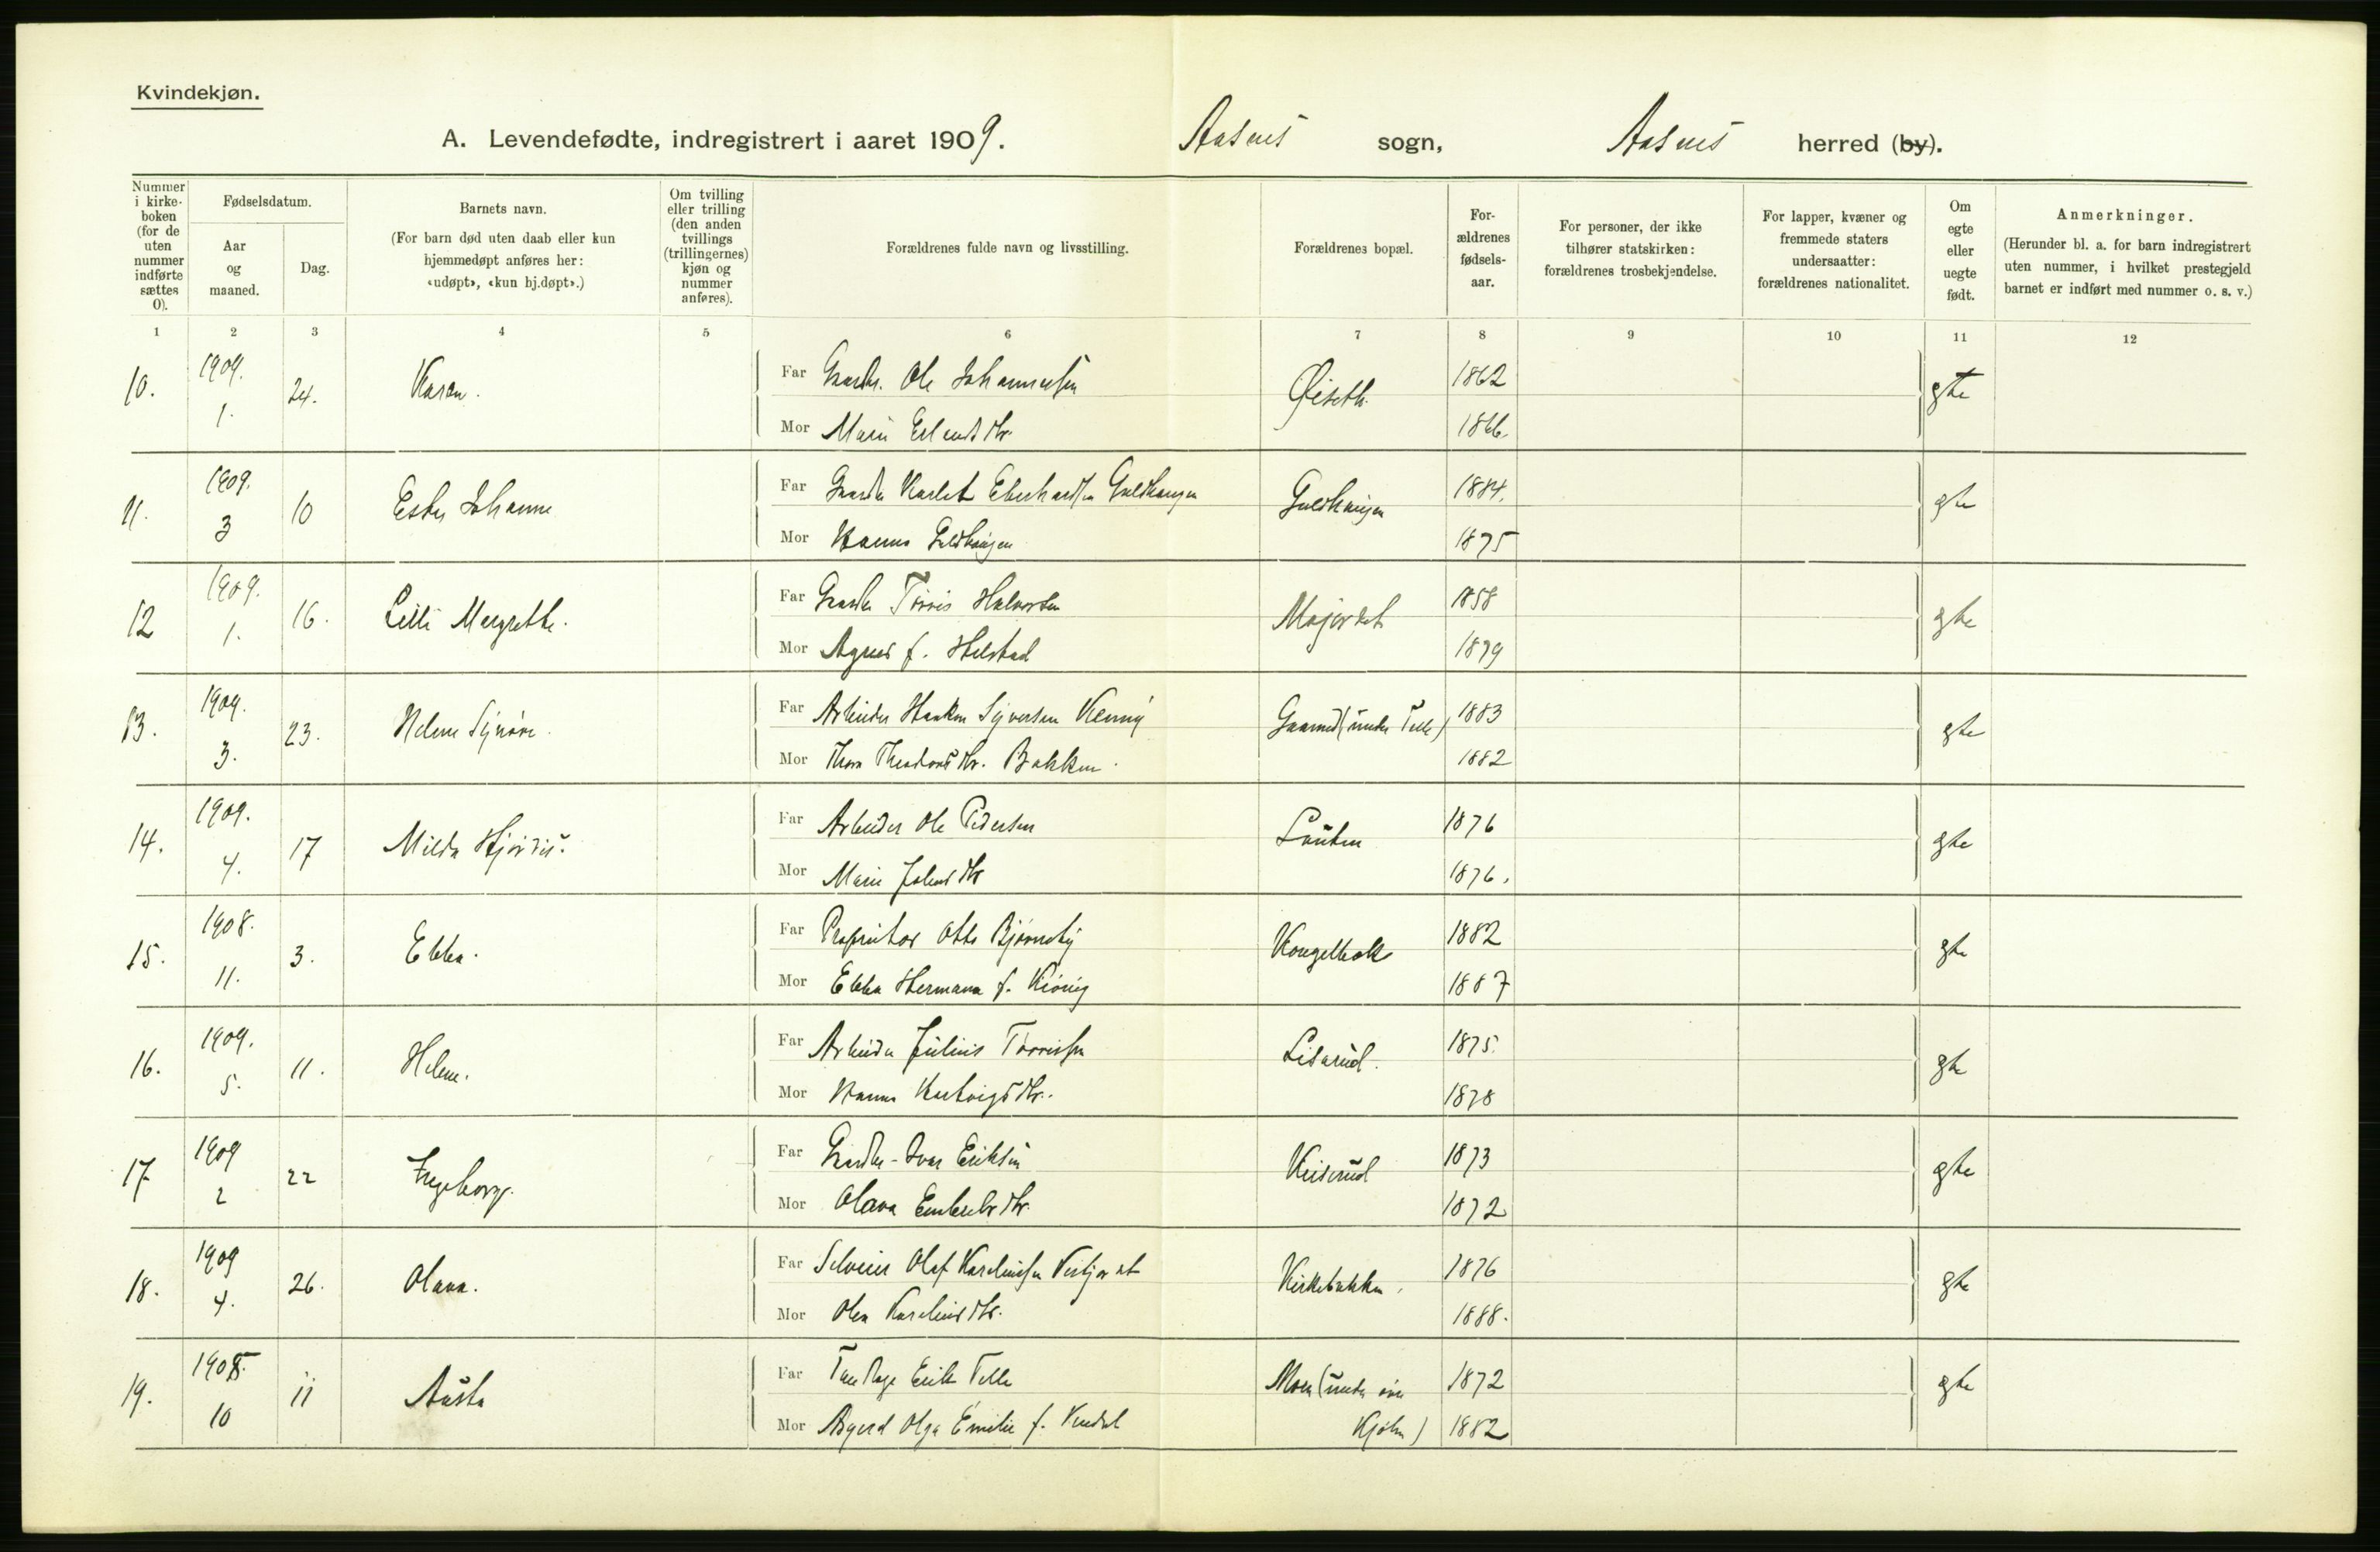 Kvindekjøn.
A. Levendefødte, indregistrert i aaret 1909. Aasnes sogn, Aasnes herred (by).
Nummer i kirke-boken (for de uten nummer indførte sættes 0).
Fødselsdatum.
Aar og maaned.
Dag.
Barnets navn.
(For barn død uten daab eller kun hjemmedøpt anføres her: «udøpt», «kun hj.døpt».)
Om tvilling eller trilling (den anden tvillings (trillingernes) kjøn og nummer anføres).
Forældrenes fulde navn og livsstilling.
Forældrenes bopæl.
For-ældrenes fødsels-aar.
For personer, der ikke tilhører statskirken: forældrenes trosbekjendelse.
For lapper, kvæner og fremmede staters undersaatter: forældrenes nationalitet.
Om egte eller uegte født.
Anmerkninger.
(Herunder bl. a. for barn indregistrert uten nummer, i hvilket prestegjeld barnet er indført med nummer o. s. v.)
1 2 3 4 5 6 7 8 9 10 11 12
10. 1909. 1. 24. Karen. Far Gaardbr. Ole Johannessen Øiseth 1862 gte
Mor Marie Erlandsdtr. 1866.
11. 1909. 3 10 Ester Johanne Far Gaardbr Karlot Eberhardsen Guldhaugen Guldhaugen 1884. gte
Mor Hanna Guldhaugen 1875
12 1909. 1. 16. Lilli Margrethe. Far Gaardbr Tørris Halvorsen Majordet 1858 gte
Mor Agnes f. Helstad 1879
13. 1909. 3. 23. Helene Synøve. Far Arbeider Haakon Syversen (under Telle) 1883 gte
Mor Thora Theodorsdtr. Bakken. 1882
14. 1909. 4. 17 Milda Hjørdis. Far Arbeider Ole Pedersen Lauten 1876 gte
Mor Marie Johnsdtr 1876.
15. 1908. 11. 3. Ebba. Far Proprietær Otto Bjørneby Kongelbæk 1882 gte
Mor Ebba Hermana f. Kiønig 1887
16. 1909. 5. 11. Helene. Far Arbeider Julius Tørrissen Liserud. 1875. gte
Mor Hanna Hartvigsdtr. 1878
17 1909 2 22 Ingeborg. Far Gaardbr. Ivar Eriksen Keiserud 1873 gte
Mor Olava Embretsdtr. 1872
18. 1909 4. 26. Olava. Far Selveier Olaf Karelius­sen Kirkebakken. 1876 gte
Mor Olea Kareliusdtr. 1888.
19. 1908. 10 11 Aasta Far Erik Telle Moen (under øvre 1872 gte
Mor Asgerd Olga Emilie f. Kjølen) 1882